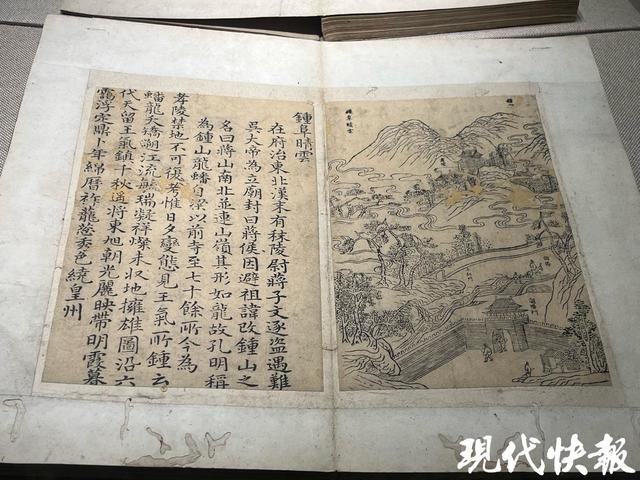 鍾阜晴雲
在府治東北漢末有秣陵尉蔣子文逐盜遇難
吳大帝為立廟封曰蔣侯因避祖諱改鍾山之
名曰蔣山南北並連山嶺其形如龍故孔明稱
為鍾山龍蟠自梁以前寺至七十餘所今為
孝陵禁地不可復考惟日夕變態見王氣所鍾云
蟠龍夭矯溯江流毓瑞凝祥燦未收地擁雄圖沿六
代天留王氣鎮千秋遙將東旭朝光麗映帶明霞暮
靄浮定鼎卜年綿曆祚龍蔥秀色繞皇州
鍾阜晴雲
現代快報